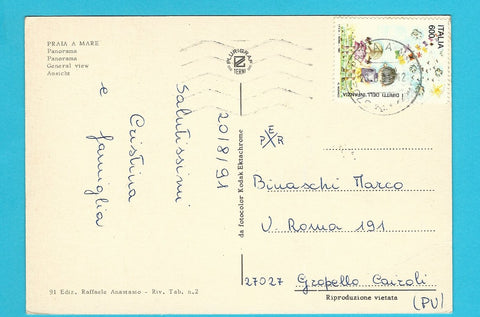 PRAIA A MARE
Panorama
Panorama
General view
Ansicht
PLURIGRAF
TERNI
ITALIA
600
I DIRITTI DELL'INFANZIA
20/8/91
Salutissimi
Cristina
e famiglia
da fotocolor Kodak Ektachrome
PER
Binaschi Marco
V. Roma 191
27027 Gropello Cairoli
(PV)
Riproduzione vietata
91 Ediz. Raffaele Anastasio - Riv. Tab. n.2